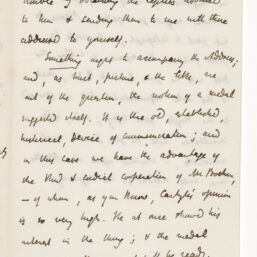 trouble of obtaining the copies addressed
to him & sending them to me with those
addressed to yourself.
Something ought to accompany the Address;
and, as bust, picture, & the like, are
out of the question, the notion of a medal
suggested itself. It is the old, established,
historical, device of commemoration; and
in this case we have the advantage of
the kind & cordial cooperation of Mr Boehm,
— of whom, as you know, Carlyle's opinion
is so very high. He at once showed his
interest in the thing; & the medal
be ready.